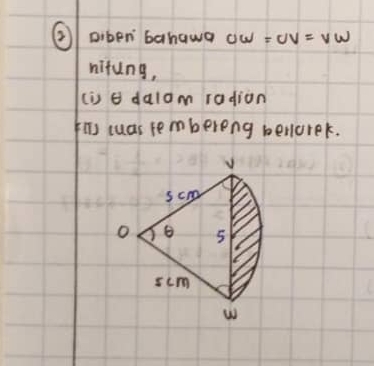 ② Diberi bahawa OW = OV = VW
hitung,
(i) θ dalam radian
(ii) luas tembereng berlorek.
V
5 cm
O θ 5
5 cm
W